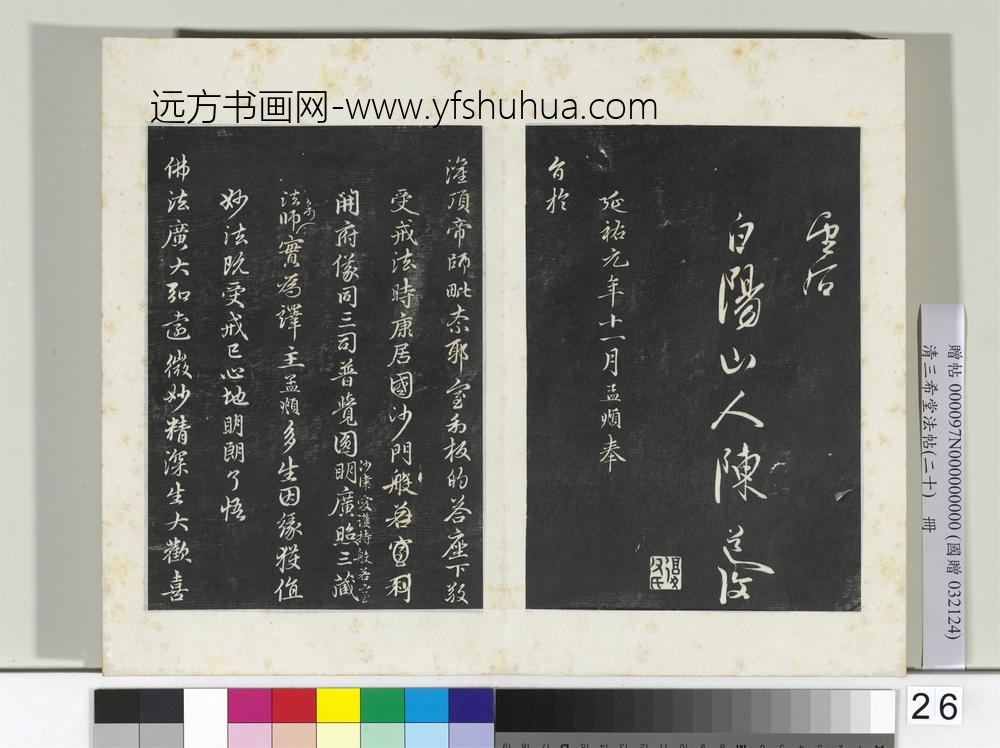 远方书画网-www.yfshuhua.com
白陽山人陳道復
延祐元年十一月孟頫奉
旨於
灌頂帝師毗奈耶室利板的荅座下敬
受戒法時康居國沙門般若室利
開府儀同三司普覺圓明廣照三藏
沙津愛護持般若室
法師實為譯主孟頫多生因緣獲值
妙法既受戒已心地明朗了悟
佛法廣大弘遠微妙精深生大歡喜
贈帖 000097N000000000 (國贈 032124)
清三希堂法帖(二十) 冊
26